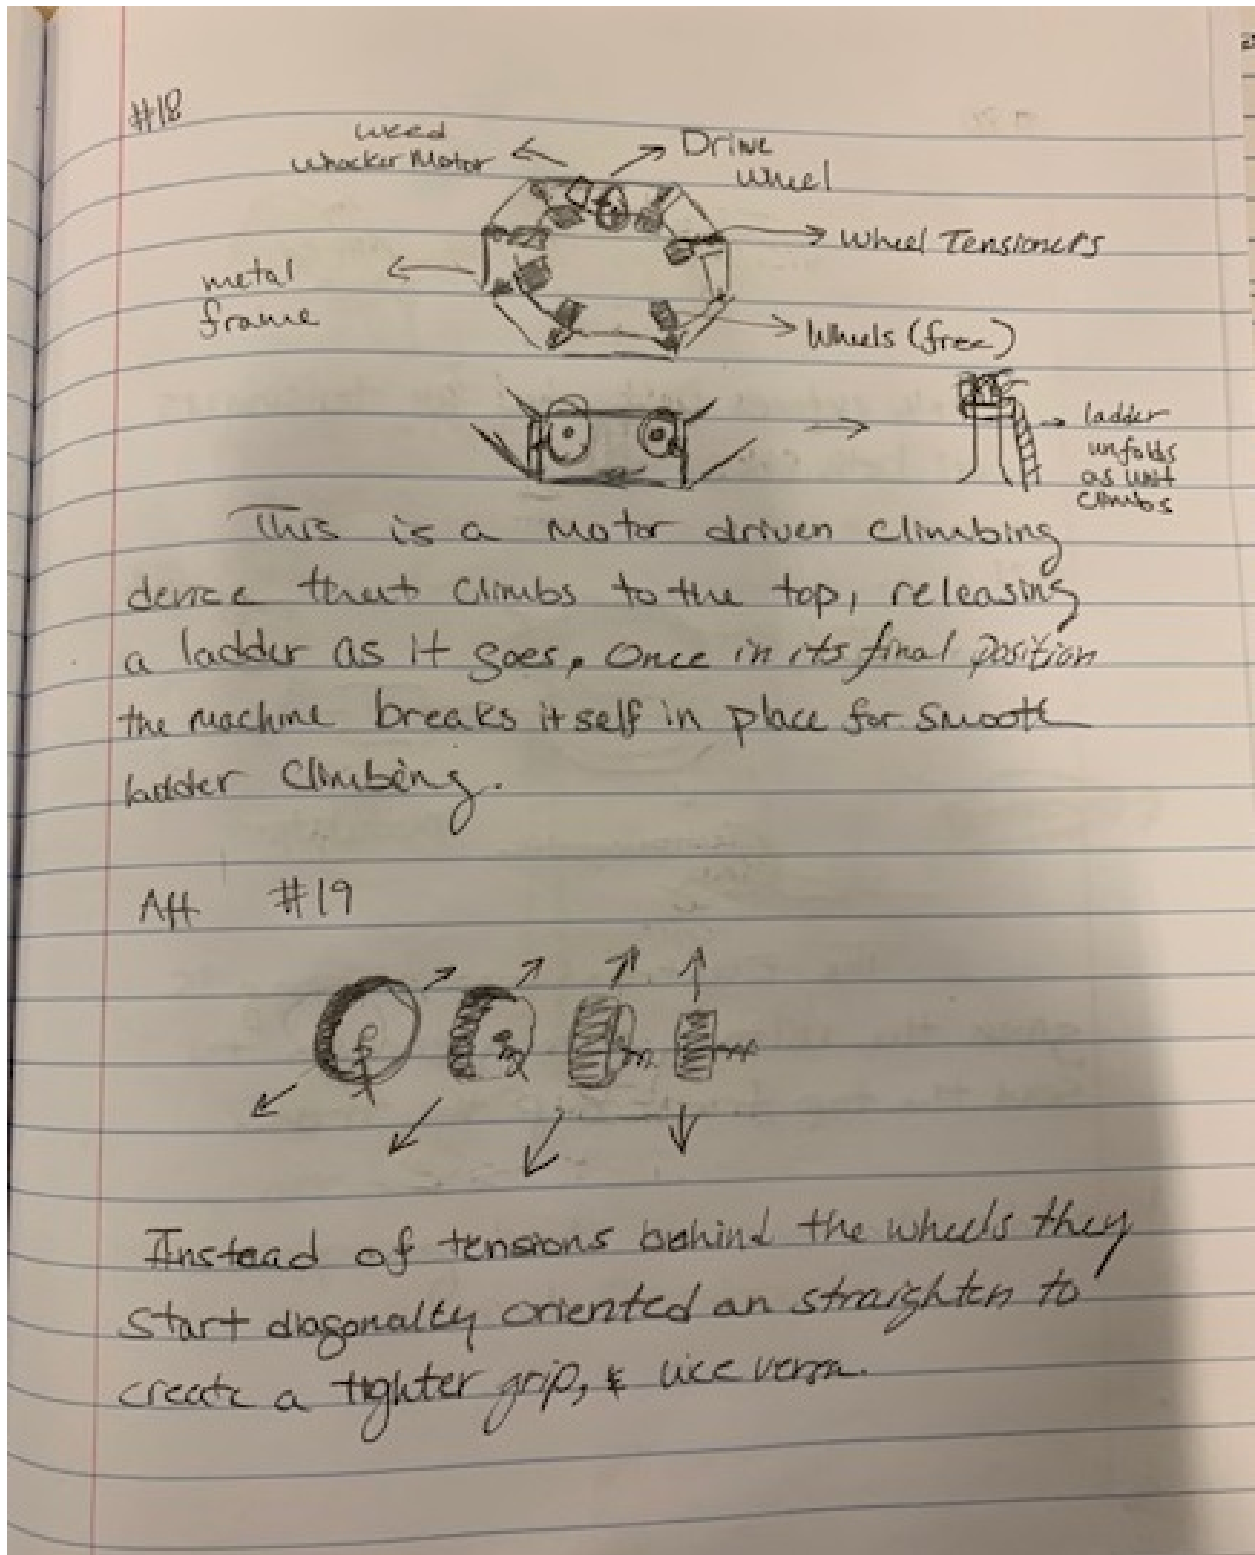 #18
weed
whacker Motor
Drive
wheel
Wheel Tensioners
metal
frame
Wheels (free)
ladder
unfolds
as unit
climbs
This is a motor driven climbing
device that climbs to the top, releasing
a ladder as it goes. Once in its final position
the machine breaks itself in place for smooth
ladder climbing.
#19
Instead of tensions behind the wheels they
start diagonalty oriented an straighten to
create a tighter grip, & vice versa.